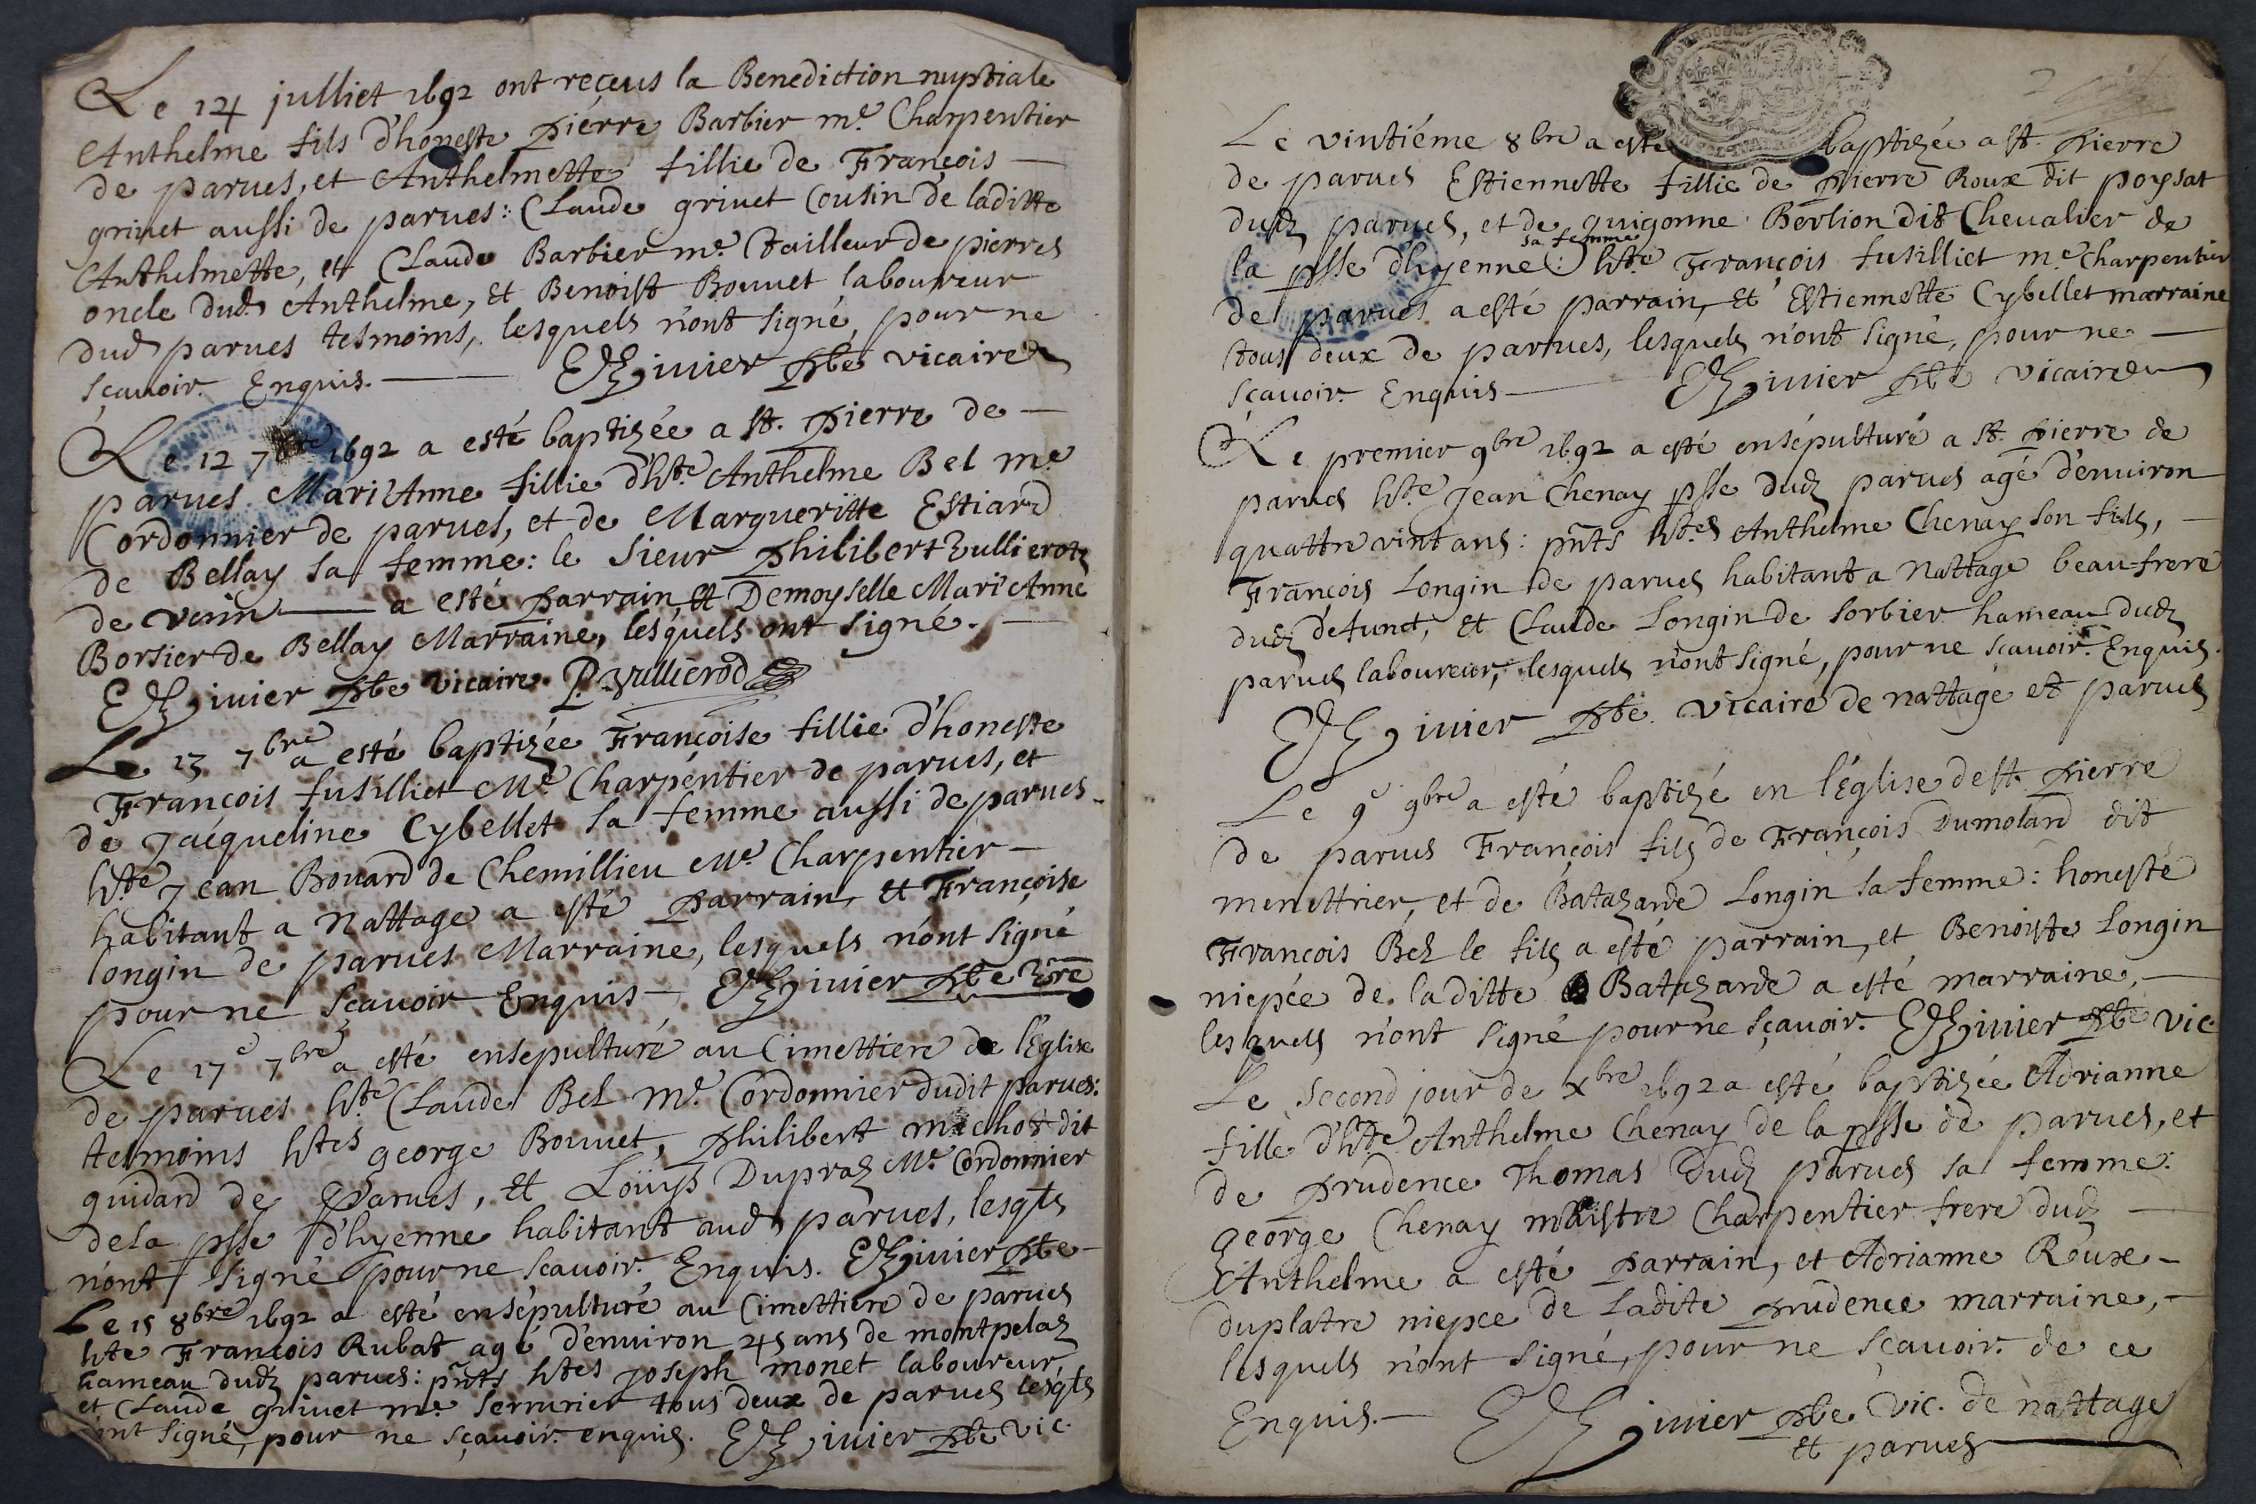 Le 14 julliet 1692 ont reçeus la Benediction nuptiale
Anthelme fils d'honeste pierre Barbier me. Charpentier
de parues, et Anthelmette fillie de François —
griuet aussi de parues : Claude griuet Cousin de laditte
Anthelmette, et Claude Barbier me. tailleur de pierres
oncle dud. Anthelme, et Benoist Bouuet laboureur
dud parues tesmoins, lesquels n'ont signé, pour ne
sçauoir. Enquis. — iuier pbe vicaire
Le 12 7bre 1692 a esté baptizée a st. pierre de —
parues Mari'Anne fillie d'hte. Anthelme Bel me
Cordonnier de parues, et de Margueritte Estiard
de Bellay sa femme : le sieur philibert Vullierotz
de — a esté parrain, et Demoyselle Mari'Anne
Borsier de Bellay Marraine, lesquels ont signé. —
iuier pbe vicaire. P. Vullierod
Le 13 7bre a esté baptizée Françoise fillie d'honeste
François fusilliet Me Charpentier de parues, et
de Jacqueline Cybellet sa femme aussi de parues.
hte Jean Bouard de Chemillieu Me. Charpentier —
habitant a Nattage a esté parrain, et Françoise
longin de parues Marraine, lesquels n'ont signé
pour ne sçauoir Enquis — iuier pbe Vre
Le 17e 7bre a esté ensepulturé au Cimettiere de l'Eglise
de parues hte. Claude Bel me. Cordonnier dudit parues :
tesmoins htes george Bouuet, philibert michot dit
guidard de parues, et Loüys Dupraz Me. Cordonnier
de la psse d'hyenne habitant aud. parues, lesqts
n'ont signé pour ne scauoir. Enquis. iuier pbe —
Le 15 8bre 1692 a esté ensépulturé au Cimettiere de parues
hte François Rubat agé d'enuiron 45 ans de montpelaz
hameau dudz parues : pnts htes joseph monet laboureur,
et Claude griuet me. serrurier tous deux de parues lesqts
n'ont signé, pour ne sçauoir. enquis. iuier pbe vic.
Le vintiéme 8bre a esté baptizée a st. pierre
de parues Estiennette fillie de pierre Roux dit poysat
dudz parues, et de guigonne Berlion dit Cheualier de
sa femme
la psse d'hyenne : hte François fusilliet me Charpentier
de parues a esté parrain, et Estiennette Cybellet marraine
tous deux de parues, lesquels n'ont signé, pour ne —
sçauoir. Enquis — iuier pbe vicaire
Le premier 9bre 1692 a esté ensépulturé a st. pierre de
parues hte Jean Chenay psse dudz parues agé d'enuiron
quattre vint ans : pnts htes Anthelme Chenay son fils, —
François Longin de parues habitant a Nattage beau-frere
dudz defunct, et Claude Longin de sorbier hameau dudz
parues laboureur, lesquels n'ont signé, pour ne scauoir. Enquis.
iuier pbe. vicaire de nattage et parues
Le 9e 9bre a esté baptizé en l'église de st. pierre
de parues François filz de François Dumolard dit
menettrier, et de Batazarde Longin sa femme : honesté
François Bel le fils a esté parrain, et Benoiste Longin
niepce de laditte Batazarde a esté marraine, —
lesquels n'ont signé pour ne sçauoir. iuier pbe vic.
Le second jour de xbre 1692 a esté baptizée Adrianne
fille d'hte Anthelme Chenay de la psse de parues, et
de prudence Thomas dudz parues sa femme :
george Chenay maistre Charpentier frere dudz —
Anthelme a esté parrain, et Adrianne Roux —
duplatre niepce de ladite prudence marraine, —
lesquels n'ont signé, pour ne sçauoir. de ce
Enquis. — iuier pbe vic. de nattage
et parues